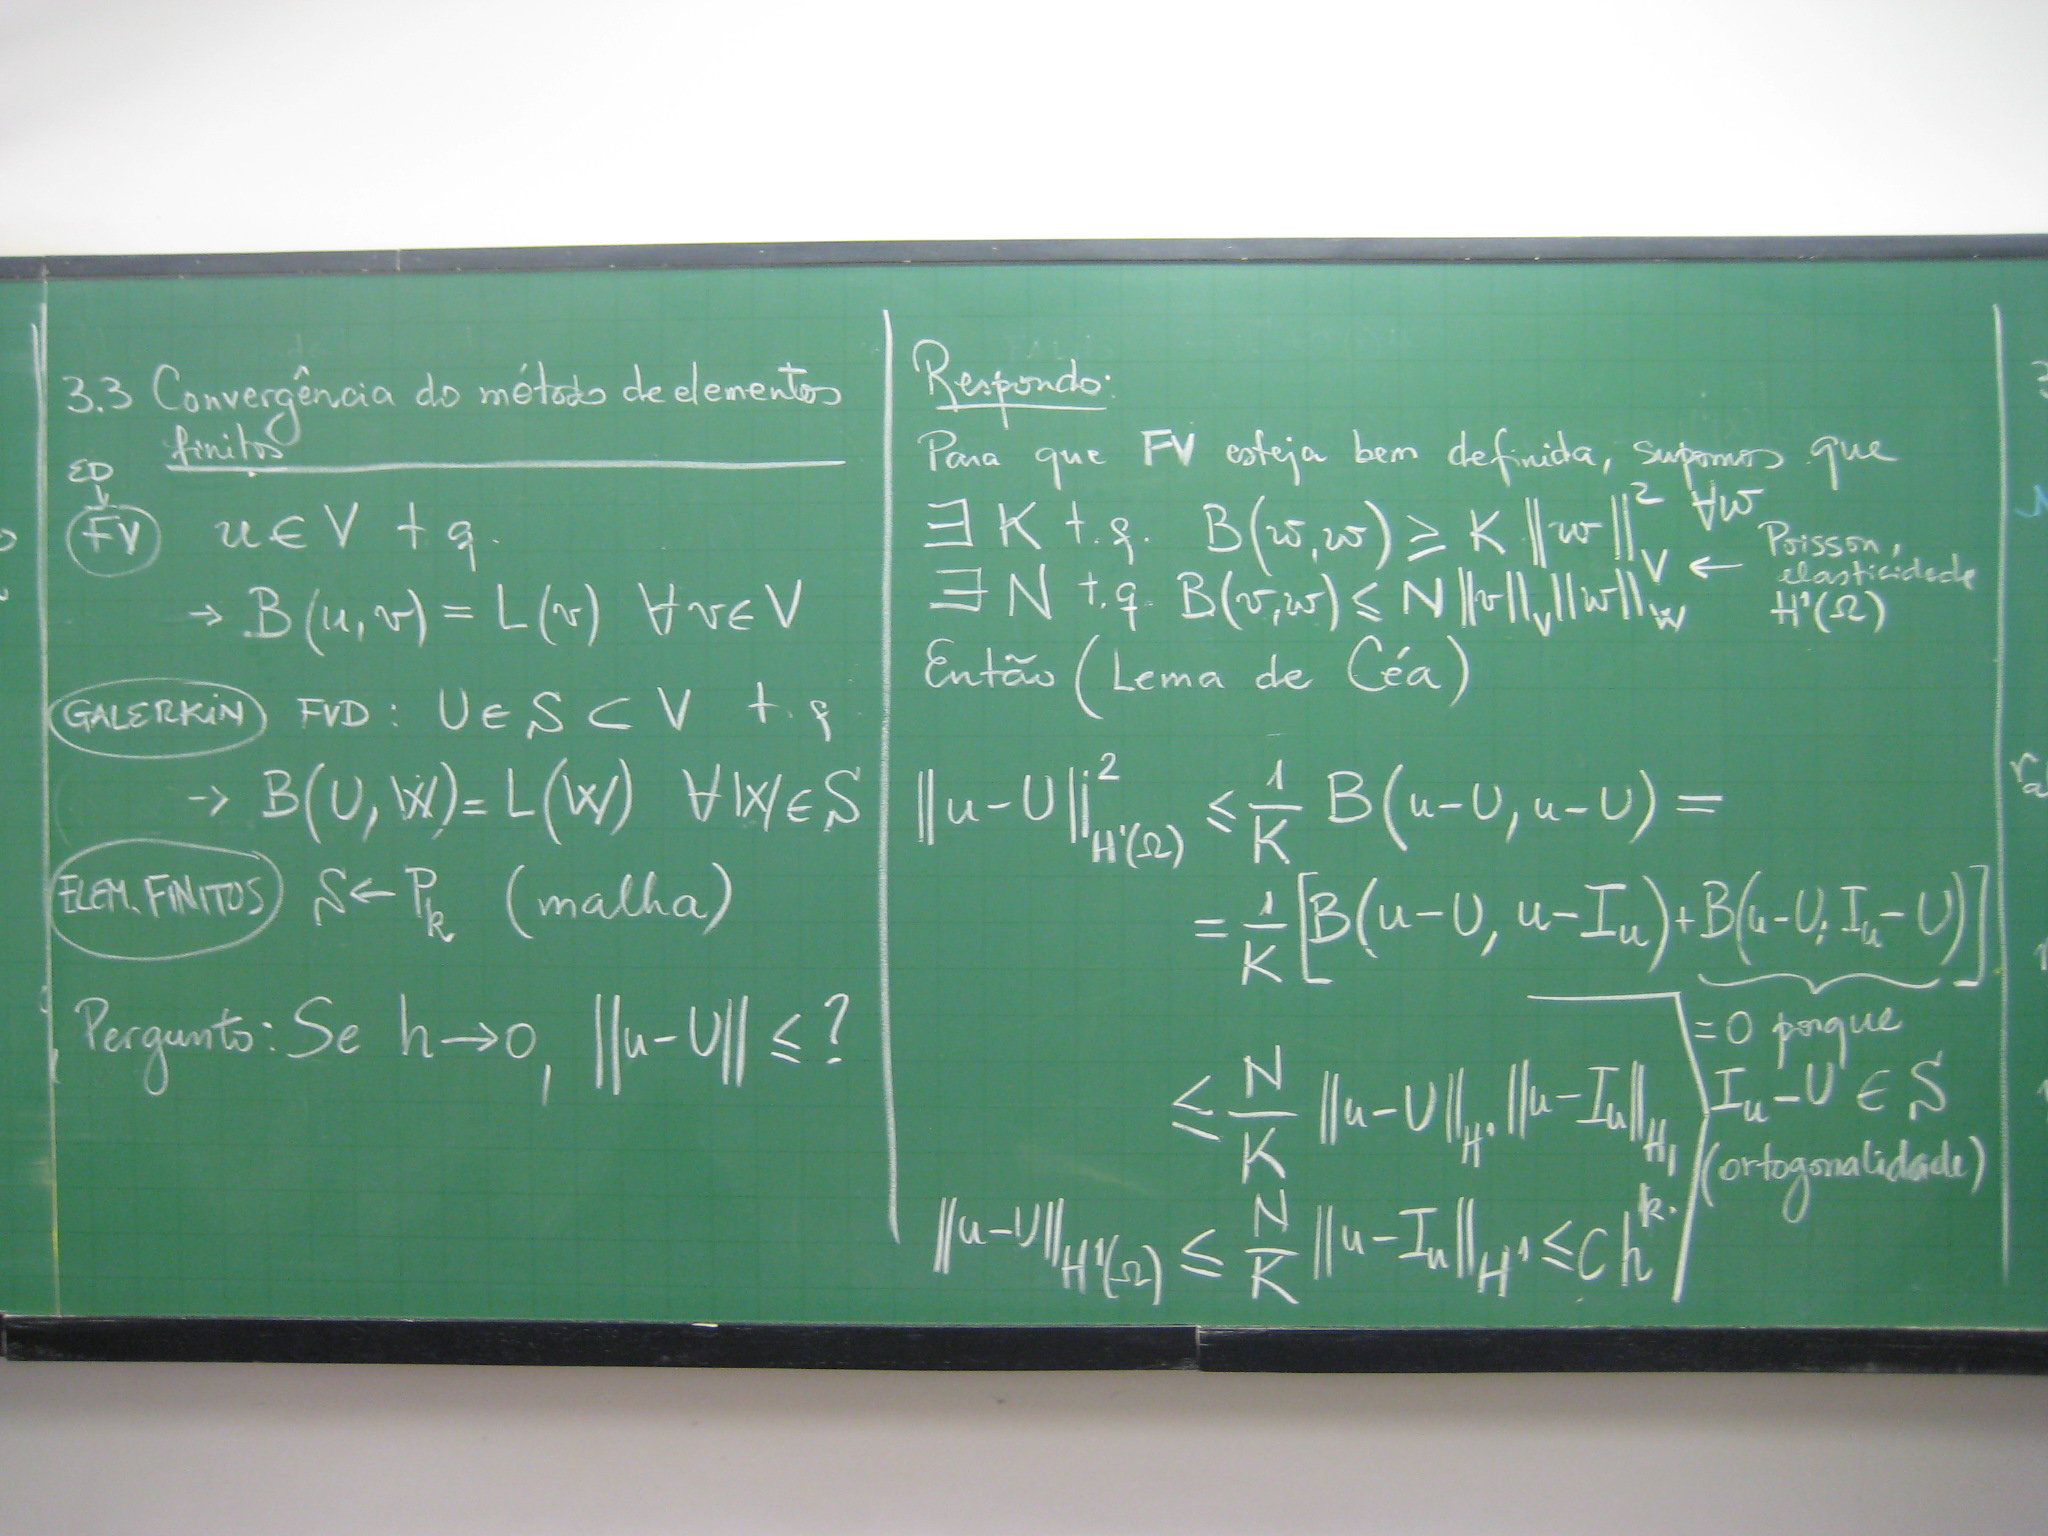 3.3 Convergência do método de elementos
finitos
ED
↓
FV u ∈ V t q.
→ B(u,v) = L(v) ∀v∈V
GALERKIN FVD: U∈S ⊂ V t. q
→ B(U, W) = L(W) ∀W∈S
ELEM. FINITOS S ← P_k (malha)
Pergunto: Se h→0, ||u-U|| ≤ ?
Respondo:
Para que FV esteja bem definida, supomos que
∃ K t.q. B(w,w) ≥ K ||w||²_V ∀w
∃ N t.q. B(v,w) ≤ N ||v||_V ||w||_W
← Poisson,
elasticidade
H¹(Ω)
Então (Lema de Céa)
||u-U||²_{H¹(Ω)} ≤ 1/K B(u-U, u-U) =
= 1/K [B(u-U, u-I_u) + B(u-U, I_u-U)]
= 0 porque
I_u-U ∈ S
(ortogonalidade)
≤ N/K ||u-U||_{H¹} ||u-I_u||_{H₁}
||u-U||_{H¹(Ω)} ≤ N/K ||u-I_u||_{H¹} ≤ C h^k.